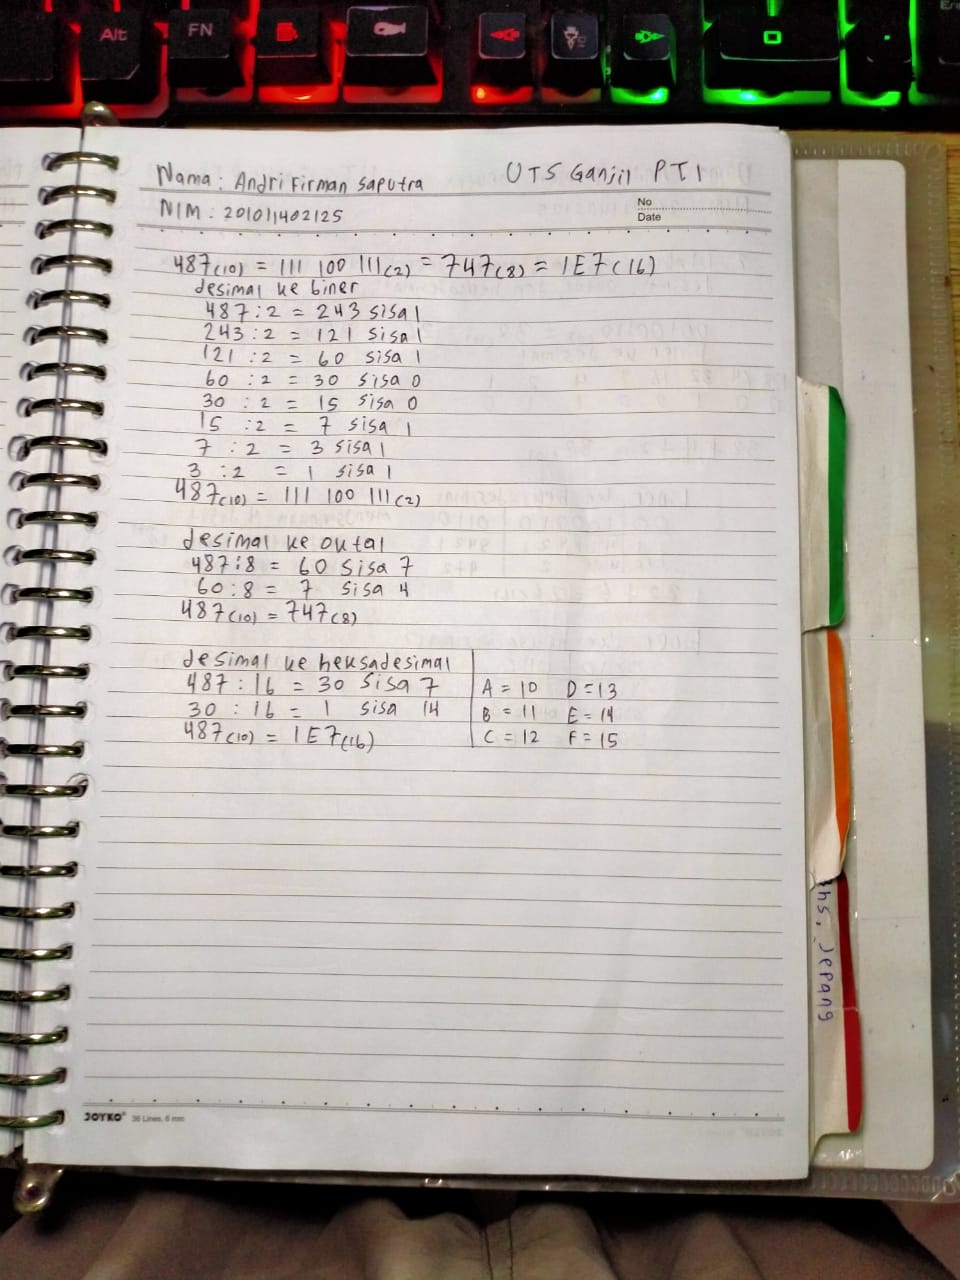 Alt FN
Nama : Andri Firman Saputra UTS Ganjil PTI
NIM : 201011402125
No
Date
487(10) = 111 100 111(2) = 747(8) = 1E7(16)
desimal ke biner
487 : 2 = 243 sisa 1
243 : 2 = 121 sisa 1
121 : 2 = 60 sisa 1
60 : 2 = 30 sisa 0
30 : 2 = 15 sisa 0
15 : 2 = 7 sisa 1
7 : 2 = 3 sisa 1
3 : 2 = 1 sisa 1
487(10) = 111 100 111(2)
desimal ke oktal
487 : 8 = 60 sisa 7
60 : 8 = 7 sisa 4
487(10) = 747(8)
desimal ke heksadesimal
487 : 16 = 30 sisa 7
30 : 16 = 1 sisa 14
487(10) = 1E7(16)
A = 10 D = 13
B = 11 E = 14
C = 12 F = 15
bhs. Jepang
JOYKO 36 Lines, 6 mm